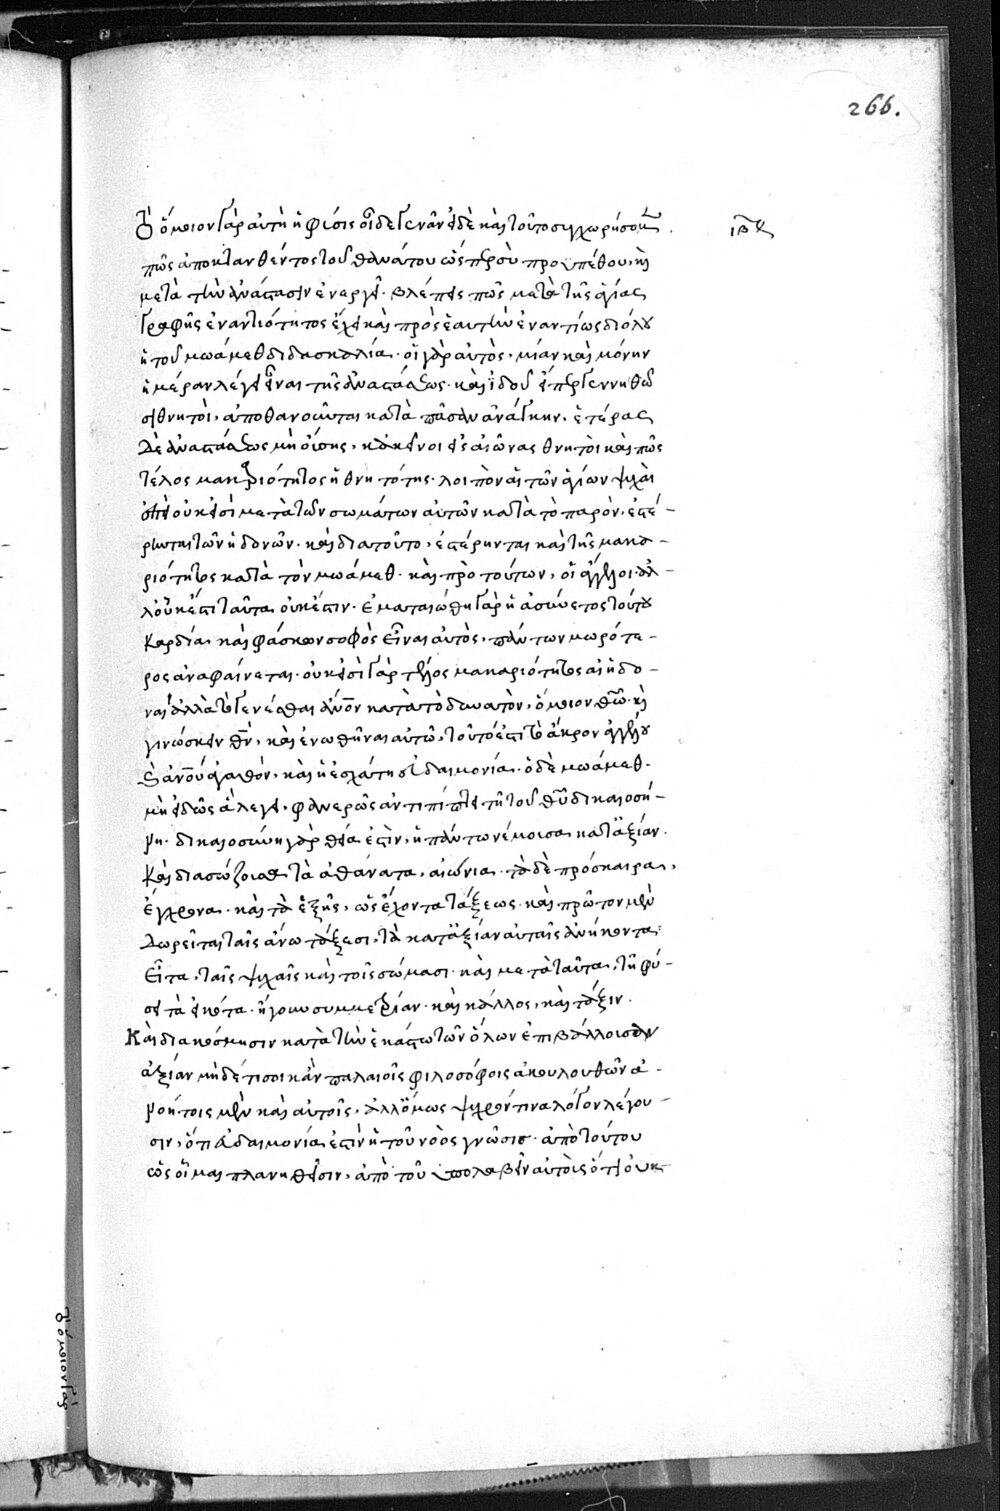 266.
τὸ ὅμοιον γὰρ αὐτὴ ἡ φύσις οἶδε γεννᾶν εἰ δὲ καὶ τοῦτο συγχωρήσομεν
πῶς ἀποκτανθέντος τοῦ θανάτου ὡς πρὸ προϋπέθου, καὶ
μετὰ τὴν ἀνάστασιν ἐνεργεῖ. βλέπεις πῶς μετὰ τῆς ἁγίας
γραφῆς ἐναντιότητος ἔχει καὶ πρὸς ἑαυτὴν ἐναντίως διόλου
ἡ τοῦ μωάμεθ διδασκαλία. οἱ γὰρ αὐτὸς, μίαν καὶ μόνην
ἡμέραν λέγει εἶναι τῆς ἀναστάσεως. καὶ ἰδοὺ εἴπερ γεννηθῶ
σι θνητοὶ, ἀποθανοῦνται κατὰ πᾶσαν ἀνάγκην. ἑτέρας
δὲ ἀναστάσεως μὴ οὔσης, κἀκεῖνοι εἰς αἰῶνας θνητοὶ καὶ πῶς
τέλος μακαριότητος ἡ θνητότης. λοιπὸν αἱ τῶν ἁγίων ψυχαὶ
ἐπεὶ οὐκ εἰσὶ μετὰ τῶν σωμάτων αὐτῶν κατὰ τὸ παρὸν, ἐστέ-
ρηνται τῶν ἡδονῶν. καὶ διατοῦτο, ἐστέρηνται καὶ τῆς μακα-
ριότητος κατὰ τὸν μωάμεθ. καὶ πρὸ τούτων, οἱ ἄγγελοι ἀλ
λ' οὐκ ἔστι ταῦτα οὐκ ἔστιν. ἐματαιώθη γὰρ ἡ ἀσύνετος τούτου
καρδία, καὶ φάσκων σοφὸς εἶναι αὐτὸς, πάντων μωρότε-
ρος ἀναφαίνεται. οὐκ εἰσὶ γὰρ τέλος μακαριότητος αἱ ἡδο-
ναὶ ἀλλὰ τὸ γενέσθαι ἄνον κατὰ τὸ δυνατὸν, ὅμοιον θῶ. καὶ
γινώσκειν θν, καὶ ἑνωθῆναι αὐτῶ, τοῦτό ἐστι τὸ ἄκρον ἀγγέλου
καὶ ἀνοῦ ἀγαθόν, καὶ ἡ ἐσχάτη εὐδαιμονία. ὁ δὲ μωάμεθ.
μὴ εἰδὼς ἃ λέγει, φανερῶς ἀντιπίπτει τῆ τοῦ θῦ δικαιοσύ-
νη. δικαιοσύνη γὰρ θεία ἐστὶν, ἡ πάντα νέμουσα κατ' ἀξίαν.
καὶ διασώζουσα τὰ ἀθάνατα, αἰώνια. τὰ δὲ πρόσκαιρα,
ἔγχρονα. καὶ τὰ ἑξῆς, ὡς ἔχοντα τάξεως. καὶ πρῶτον μὲν
δωρεῖται ταῖς ἄνω τάξεσι, τὰ κατ' ἀξίαν αὐταῖς ἀνήκοντα.
εἶτα, ταῖς ψυχαῖς καὶ τοῖς σώμασι. καὶ μετὰ ταῦτα, τῆ φύ-
σει τὰ εἰκότα. ἤγουν συμμετρίαν. καὶ κάλλος, καὶ τάξιν.
Καὶ διακόσμησιν κατὰ τὴν ἑκάστω τῶν ὅλων ἐπιβάλλουσαν
ἀξίαν μηδέ τισοι κἂν παλαιοῖς φιλοσόφοις ἀκουλουθῶν ἀ-
νοήτοις μὲν καὶ αὐτοῖς, ἀλλ' ὅμως ψυχρόν τινα λόγον λέγου-
σιν, ὅτι εὐδαιμονία ἐστὶν ἡ τοῦ νοὸς γνῶσις. ἀπὸ τούτου
ὡς οἶμαι πλανηθεῖσιν, ἀπὸ τοῦ ὑπολαβεῖν αὐτοὺς ὅτι οὐκ